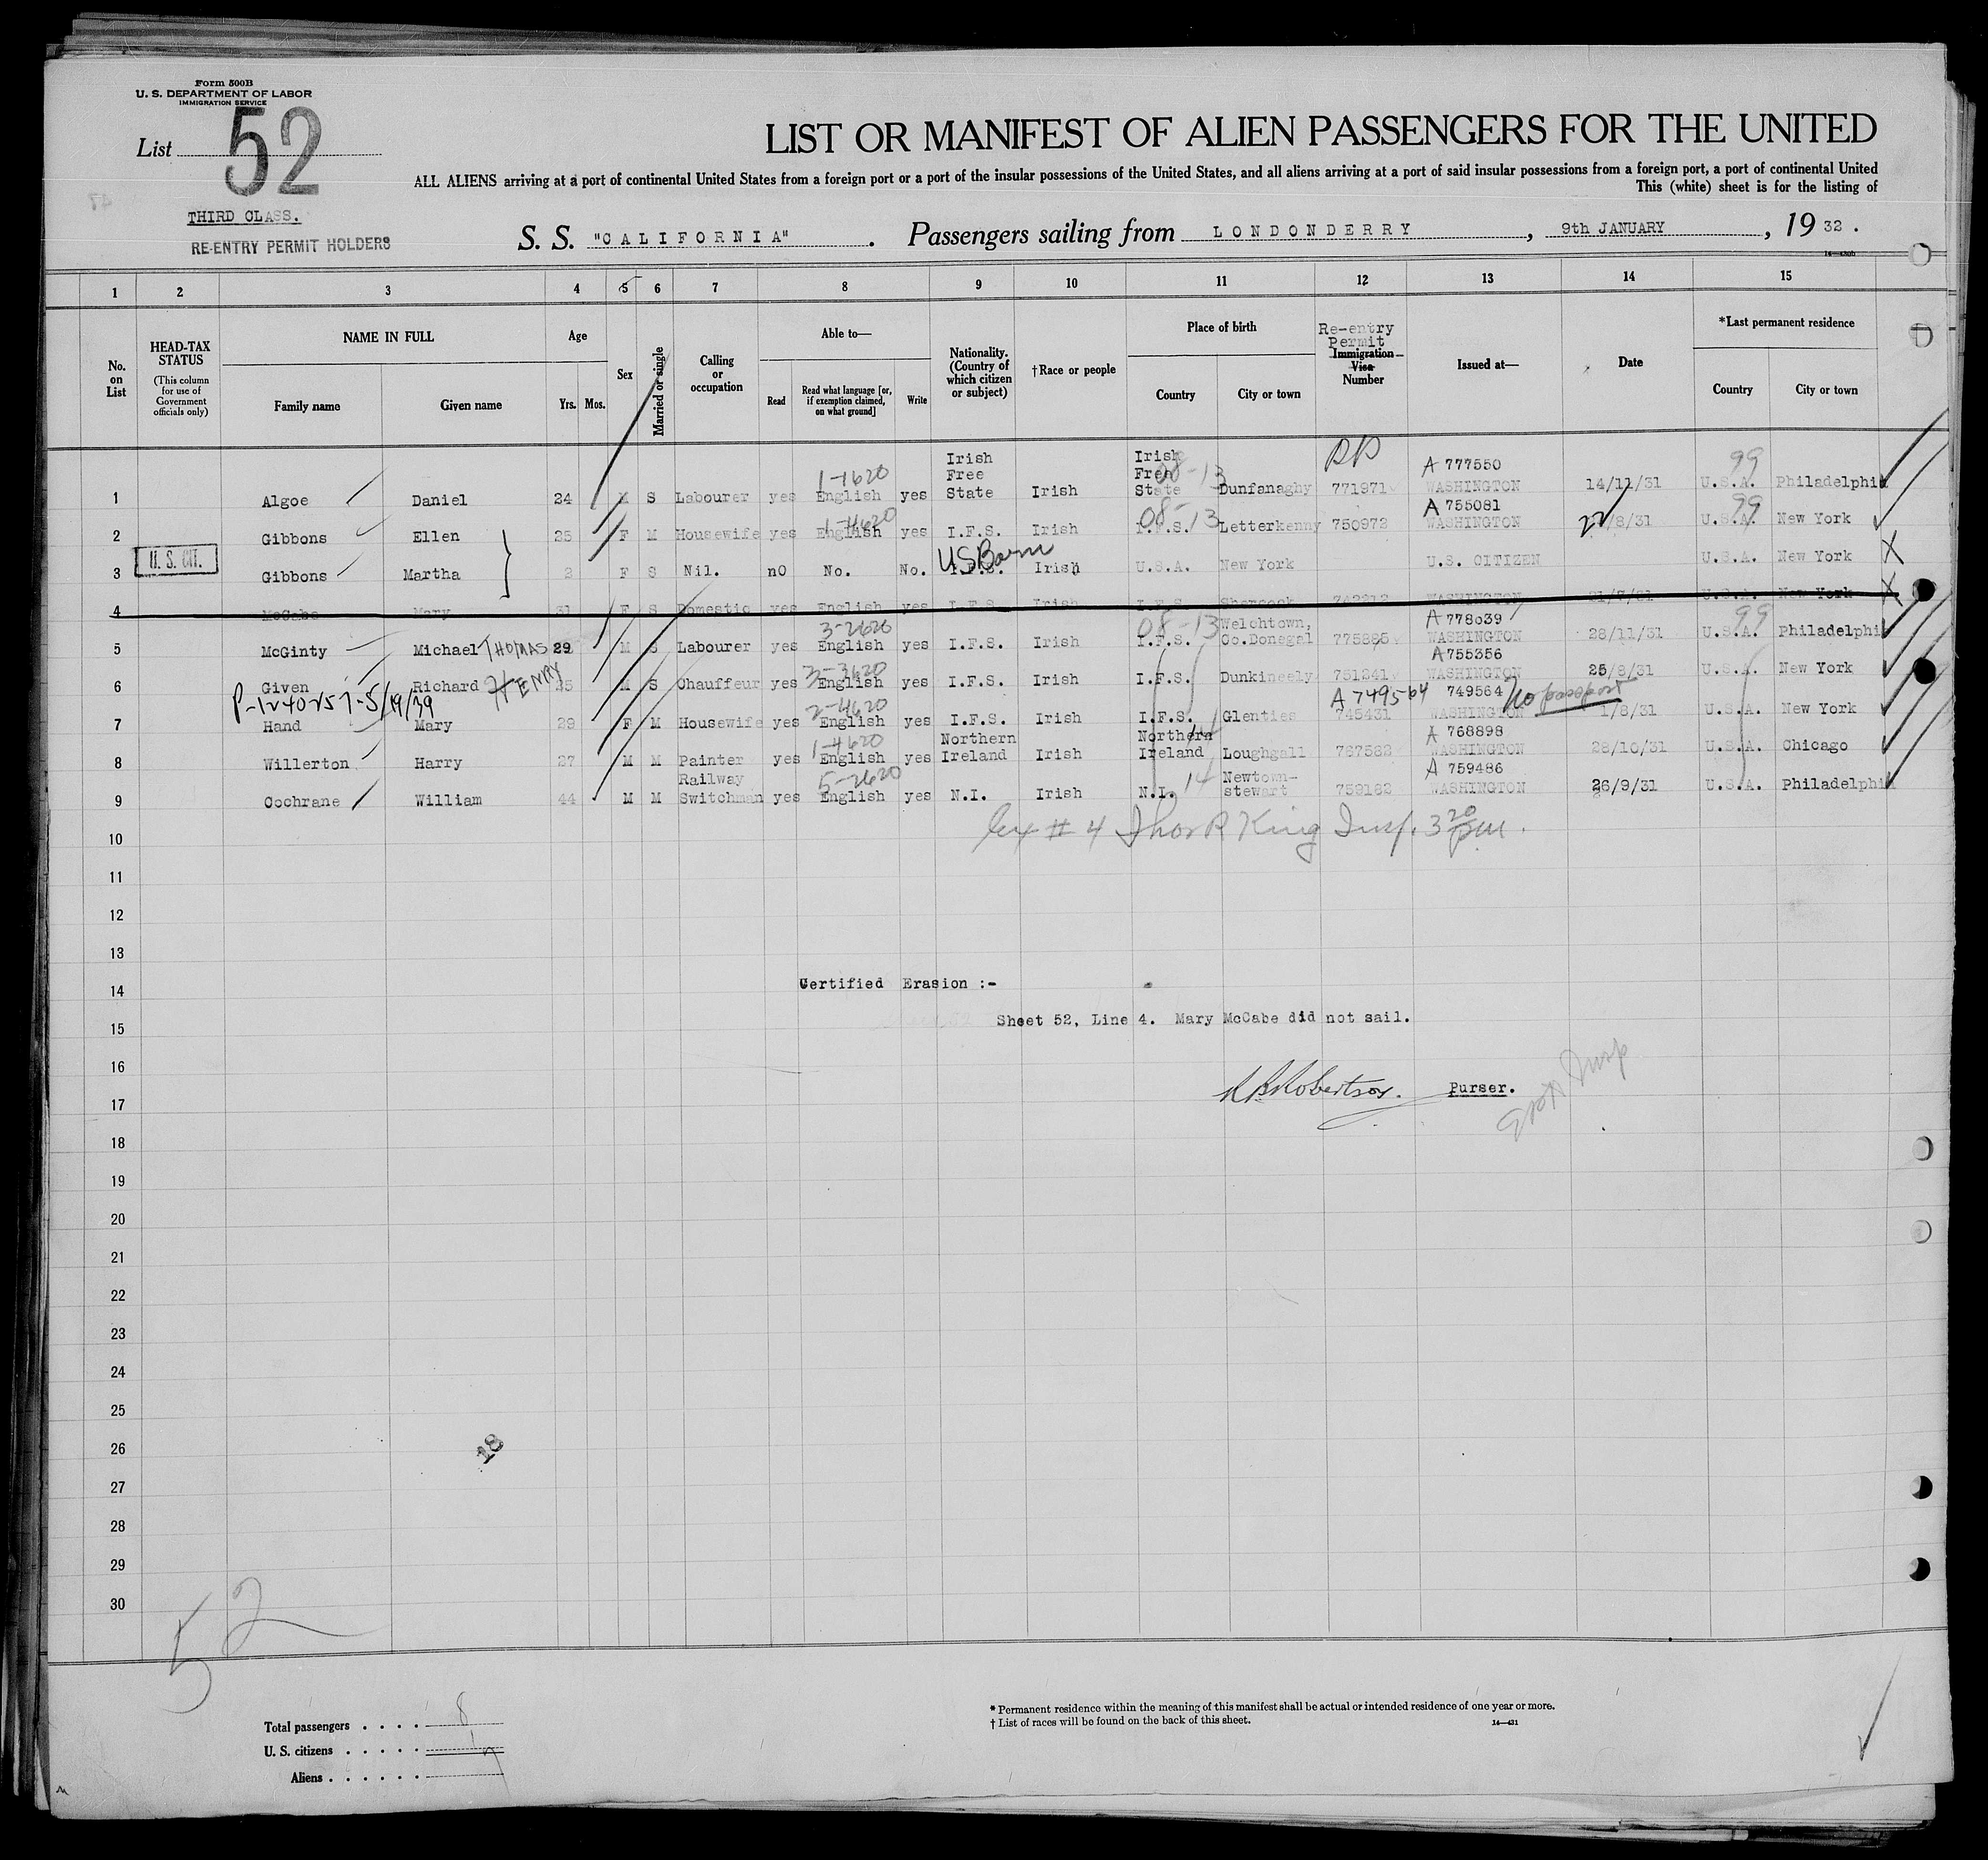 Form 500B
U. S. DEPARTMENT OF LABOR
IMMIGRATION SERVICE
List 52
LIST OR MANIFEST OF ALIEN PASSENGERS FOR THE UNITED
ALL ALIENS arriving at a port of continental United States from a foreign port or a port of the insular possessions of the United States, and all aliens arriving at a port of said insular possessions from a foreign port, a port of continental United
This (white) sheet is for the listing of
THIRD CLASS.
RE-ENTRY PERMIT HOLDERS
S. S. "CALIFORNIA" . Passengers sailing from LONDONDERRY , 9th JANUARY , 19 32 .
16—430b
1 2 3 4 5 6 7 8 9 10 11 12 13 14 15
No. on List
HEAD-TAX STATUS (This column for use of Government officials only)
NAME IN FULL
Family name Given name
Age
Yrs. Mos.
Sex
Married or single
Calling or occupation
Able to—
Read Read what language [or, if exemption claimed, on what ground] Write
Nationality. (Country of which citizen or subject)
†Race or people
Place of birth
Country City or town
Re-entry Permit
Immigration Visa Number
Issued at—
Date
*Last permanent residence
Country City or town
1-1620 Irish Free Irish Free 08-13 RP A 777550 99
1 Algoe Daniel 24 M S Labourer yes English yes State Irish State Dunfanaghy 771971 WASHINGTON 14/11/31 U.S.A. Philadelphia
1-4620 08-13 A 755081 99
2 Gibbons Ellen 25 F M Housewife yes English yes I.F.S. Irish I.F.S. Letterkenny 750972 WASHINGTON 22/8/31 U.S.A. New York
U. S. CIT. US Born
3 Gibbons Martha 2 F S Nil. no No. No. I.F.S. Irish U.S.A. New York U.S. CITIZEN U.S.A. New York X
4 McCabe Mary 31 F S Domestic yes English yes I.F.S. Irish I.F.S. Shercock WASHINGTON 21/7/31 U.S.A. New York X
3-2620 08-13 Welchtown, A 778039 99
5 McGinty Michael THOMAS 29 M S Labourer yes English yes I.F.S. Irish I.F.S. Co.Donegal 775885 WASHINGTON 28/11/31 U.S.A. Philadelphia
3-3620 A755356
6 Given Richard HENRY 35 M S Chauffeur yes English yes I.F.S. Irish I.F.S. Dunkineely 751241 WASHINGTON 25/8/31 U.S.A. New York
P-1240257-5/19/39 2-4620 A 749564 749564 No passport
7 Hand Mary 29 F M Housewife yes English yes I.F.S. Irish I.F.S. Glenties 745431 WASHINGTON 1/8/31 U.S.A. New York
1-4620 Northern Northern 14 A 768898
8 Willerton Harry 27 M M Painter yes English yes Ireland Irish Ireland Loughgall 767582 WASHINGTON 28/10/31 U.S.A. Chicago
Railway 5-2620 14 Newtown- A 759486
9 Cochrane William 44 M M Switchman yes English yes N.I. Irish N.I. stewart 759182 WASHINGTON 26/9/31 U.S.A. Philadelphia
# 4 Thos R King Insp. 3 20 pm.
10
11
12
13
14 Certified Erasion :-
15 Sheet 52, Line 4. Mary McCabe did not sail.
16
17 Robertson. Purser.
Insp
18
19
20
21
22
23
24
25
26
18
27
28
29
30
52
Total passengers . . . . 8
U. S. citizens . . . . . 1
Aliens . . . . . . 7
* Permanent residence within the meaning of this manifest shall be actual or intended residence of one year or more.
† List of races will be found on the back of this sheet.
14—431